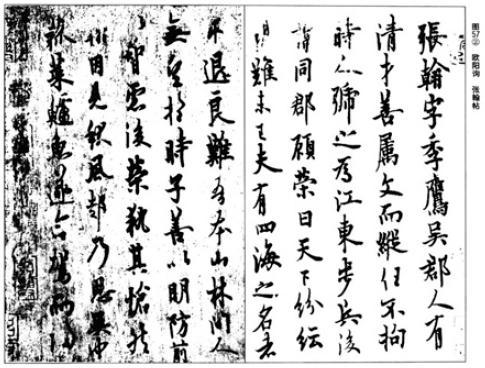 图57② 欧阳询 张翰帖
張翰字季鷹吳郡人有
清才善屬文而縱任不拘
時人號之為江東步兵後
謂同郡顧榮曰天下紛紜
難未已夫有四海之名者
求退良難吾本山林間人
無望於時子善以明防前
以智慮後榮執其愴然
翰因見秋風起乃思吳中
菜鱸魚遂命駕而歸